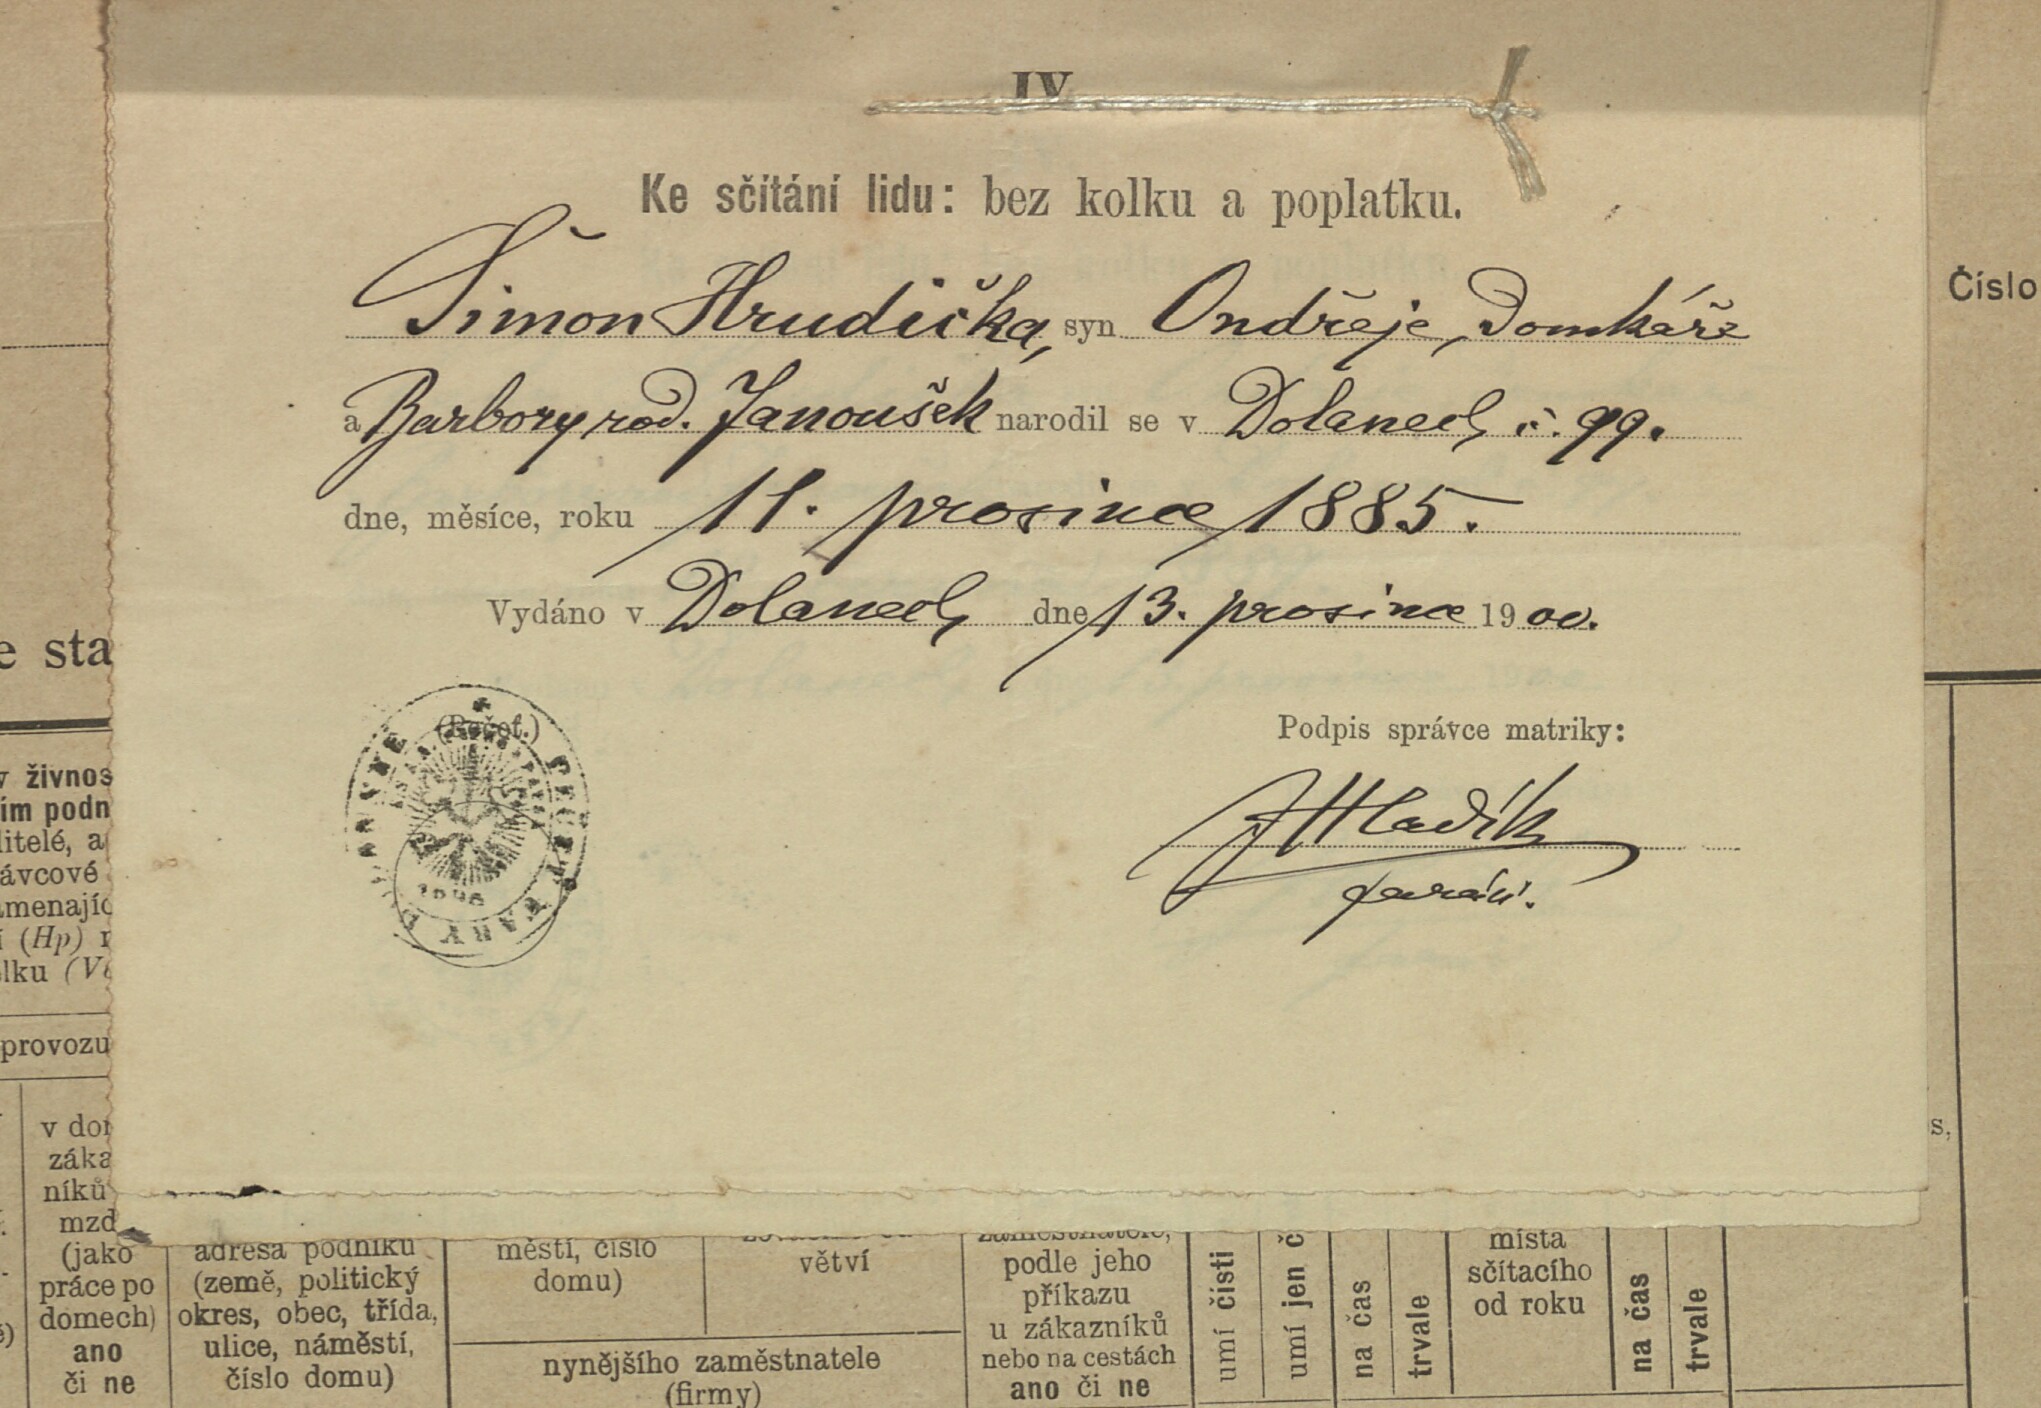 IV
Ke sčítání lidu: bez kolku a poplatku.
Šimon Hrudička, syn Ondřeje, Domkáře
a Barbory rod. Janoušek narodil se v Dolanech č. 99.
dne, měsíce, roku 11. prosince 1885.
Vydáno v Dolanech dne 13. prosince 1900.
(Pečeť.)
Podpis správce matriky:
JHladík
farář.
Číslo
e sta
v živnos
ím podn
ditelé, a
ávcové
amenajíc
í (Hp)
elku (Ve
provozu
v dom
záka
níků
mzd
(jako
práce po
domech)
ano
či ne
adresa podniku
(země, politický
okres, obec, třída,
ulice, náměstí,
číslo domu)
městí, číslo
domu)
větví
nynějšího zaměstnatele
(firmy)
zaměstnatele,
podle jeho
příkazu
u zákazníků
nebo na cestách
ano či ne
umí čísti
umí jen č
na čas
trvale
místa
sčítacího
od roku
na čas
trvale
s,